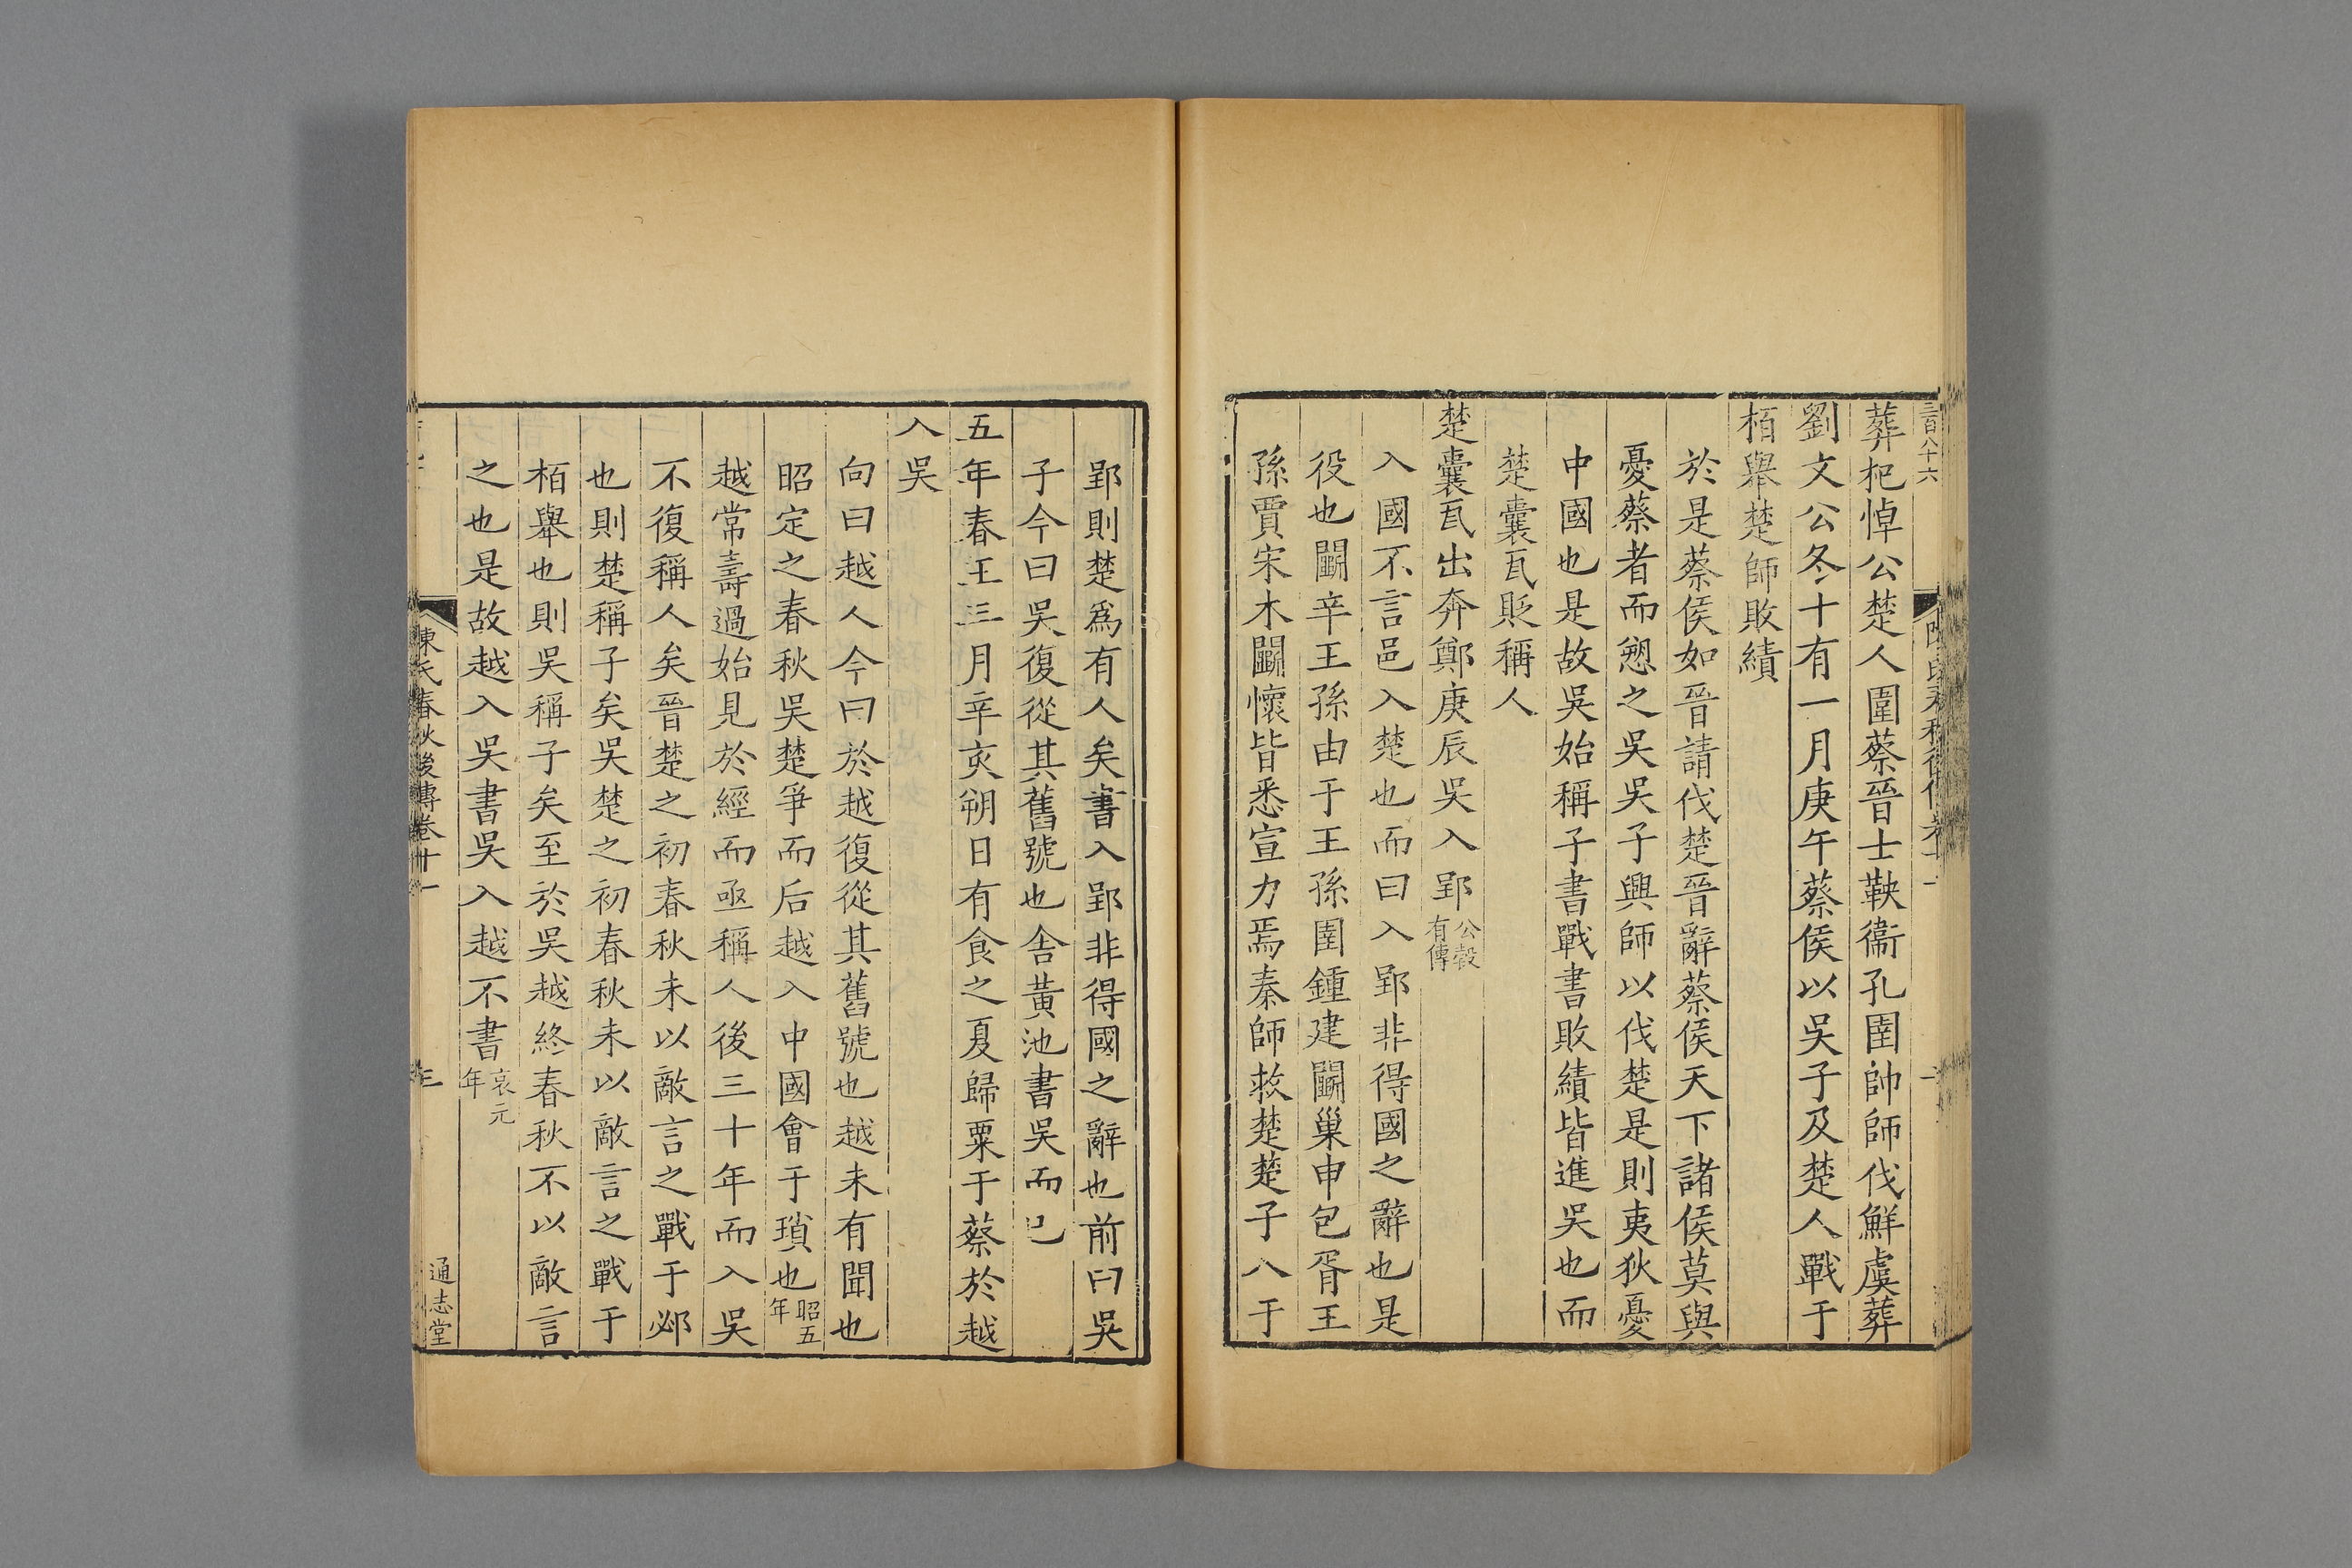 三百八十六
葬杞悼公楚人圍蔡晉士鞅衞孔圉帥師伐鮮虞葬
劉文公冬十有一月庚午蔡侯以吳子及楚人戰于
栢舉楚師敗績
於是蔡侯如晉請伐楚晉辭蔡侯天下諸侯莫與
憂蔡者而愬之吳吳子興師以伐楚是則夷狄憂
中國也是故吳始稱子書戰書敗績皆進吳也而
楚囊瓦貶稱人
楚囊瓦出奔鄭庚辰吳入郢公穀有傳
入國不言邑入楚也而曰入郢非得國之辭也是
役也鬭辛王孫由于王孫圉鍾建鬭巢申包胥王
孫賈宋木鬭懷皆悉宣力焉秦師救楚楚子入于
郢則楚爲有人矣書入郢非得國之辭也前曰吳
子今曰吳復從其舊號也舍黃池書吳而已
五年春王三月辛亥朔日有食之夏歸粟于蔡於越
入吳
向曰越人今曰於越復從其舊號也越未有聞也
昭定之春秋吳楚爭而后越入中國會于瑣也昭五年
越常壽過始見於經而亟稱人後三十年而入吳
不復稱人矣晉楚之初春秋未以敵言之戰于邲
也則楚稱子矣吳楚之初春秋未以敵言之戰于
栢舉也則吳稱子矣至於吳越終春秋不以敵言
之也是故越入吳書吳入越不書哀元年
陳氏春秋後傳卷十一
三
通志堂